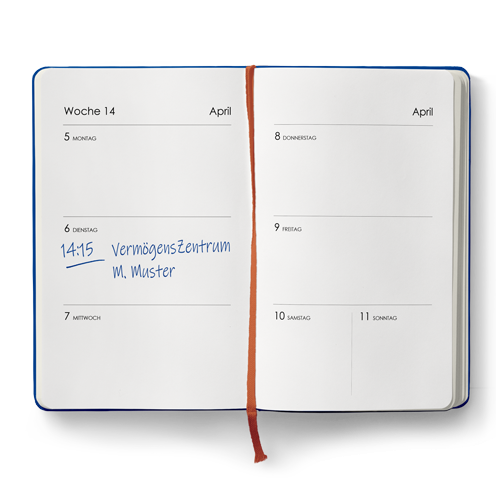 Woche 14 April
5 MONTAG
6 DIENSTAG
14:15 VermögensZentrum
M. Muster
7 MITTWOCH
April
8 DONNERSTAG
9 FREITAG
10 SAMSTAG 11 SONNTAG